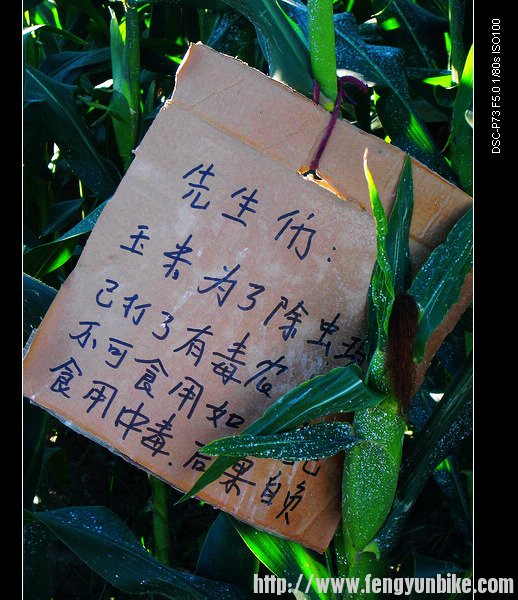 先生们:
玉米为了除虫现
已打了有毒农
不可食用如
食用中毒.后果自负
DSC-P73 F5.0 1/80s ISO100
http://www.fengyunbike.com